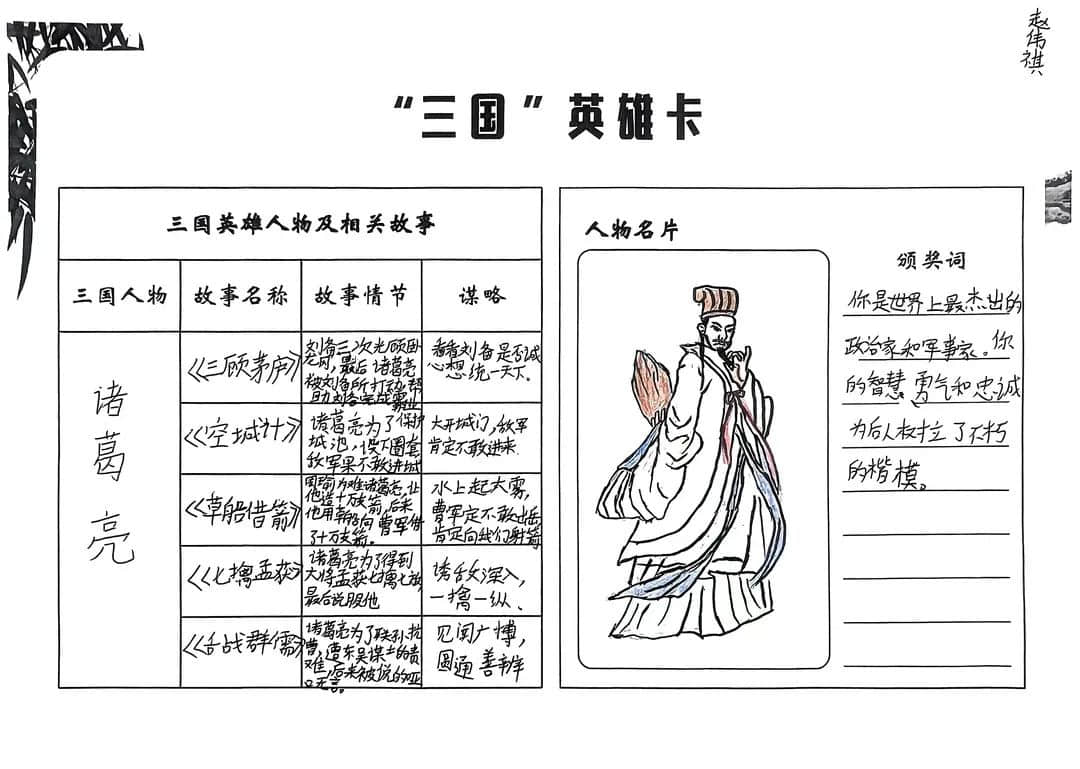 赵伟祺
“三国”英雄卡
三国英雄人物及相关故事
三国人物 故事名称 故事情节 谋略
诸葛亮
《三顾茅庐》
刘备三次光顾卧
龙冈,最后诸葛亮
被刘备所打动,帮
助刘备完成霸业
看看刘备是否诚
心想统一天下.
《空城计》
诸葛亮为了保护
城池,设下圈套
敌军果不敢进城
大开城门,敌军
肯定不敢进来.
《草船借箭》
周瑜为难诸葛亮,让
他造十万支箭,后来
他用草船向曹军借
了十万支箭.
水上起大雾,
曹军定不敢出兵
肯定向我们射箭
《七擒孟获》
诸葛亮为了得到
大将孟获七擒七放,
最后说服他
诱敌深入,
一擒一纵.
《舌战群儒》
诸葛亮为了联孙抗
曹,遭东吴谋士的责
难,后来被说的哑
口无言。
见闻广博,
圆通善辨
人物名片
颁奖词
你是世界上最杰出的
政治家和军事家。你
的智慧、勇气和忠诚
为后人树立了不朽
的楷模。